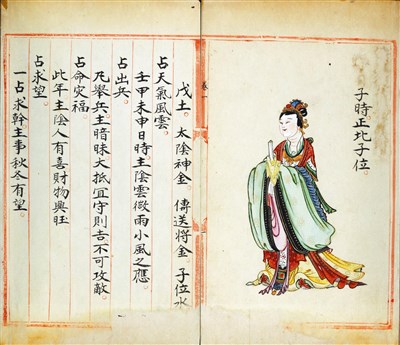 子時正北子位
戊土 太陰神金 傳送將金 子位水
占天氣風雲
壬甲未申日時主陰雲微雨小風之應
占出兵
凡舉兵主暗昧大抵宜守則吉不可攻敵
占命灾福
此年主陰人有喜財物興旺
占求望
一占求幹主事秋冬有望